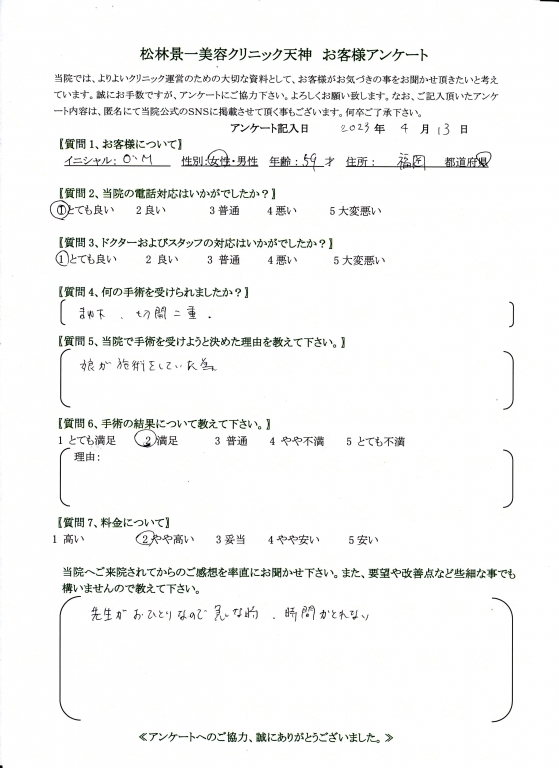 松林景一美容クリニック天神　お客様アンケート
当院では、よりよいクリニック運営のための大切な資料として、お客様がお気づきの事をお聞かせ頂きたいと考え
ています。誠にお手数ですが、アンケートにご協力下さい。よろしくお願い致します。なお、ご記入頂いたアンケ
ート内容は、匿名にて当院公式のSNSに掲載させて頂く事もございます。何卒ご了承下さい。
アンケート記入日　2023 年　4 月 13 日
〖質問１、お客様について〗
イニシャル： O・M　性別：女性・男性　年齢：59 才　住所：　福岡　都道府県
〖質問２、当院の電話対応はいかがでしたか？〗
①とても良い　2 良い　3 普通　4 悪い　5 大変悪い
〖質問３、ドクターおよびスタッフの対応はいかがでしたか？〗
1 とても良い　2 良い　3 普通　4 悪い　5 大変悪い
〖質問４、何の手術を受けられましたか？〗
、切開二重．
〖質問５、当院で手術を受けようと決めた理由を教えて下さい。〗
娘が施術をしていた
〖質問６、手術の結果について教えて下さい。〗
1 とても満足　2 満足　3 普通　4 やや不満　5 とても不満
理由：
〖質問７、料金について〗
1 高い　2 やや高い　3 妥当　4 やや安い　5 安い
当院へご来院されてからのご感想を率直にお聞かせ下さい。また、要望や改善点など些細な事でも
構いませんので教えて下さい。
先生がおひとりなので急な時、時間がとれない
≪アンケートへのご協力、誠にありがとうございました。≫